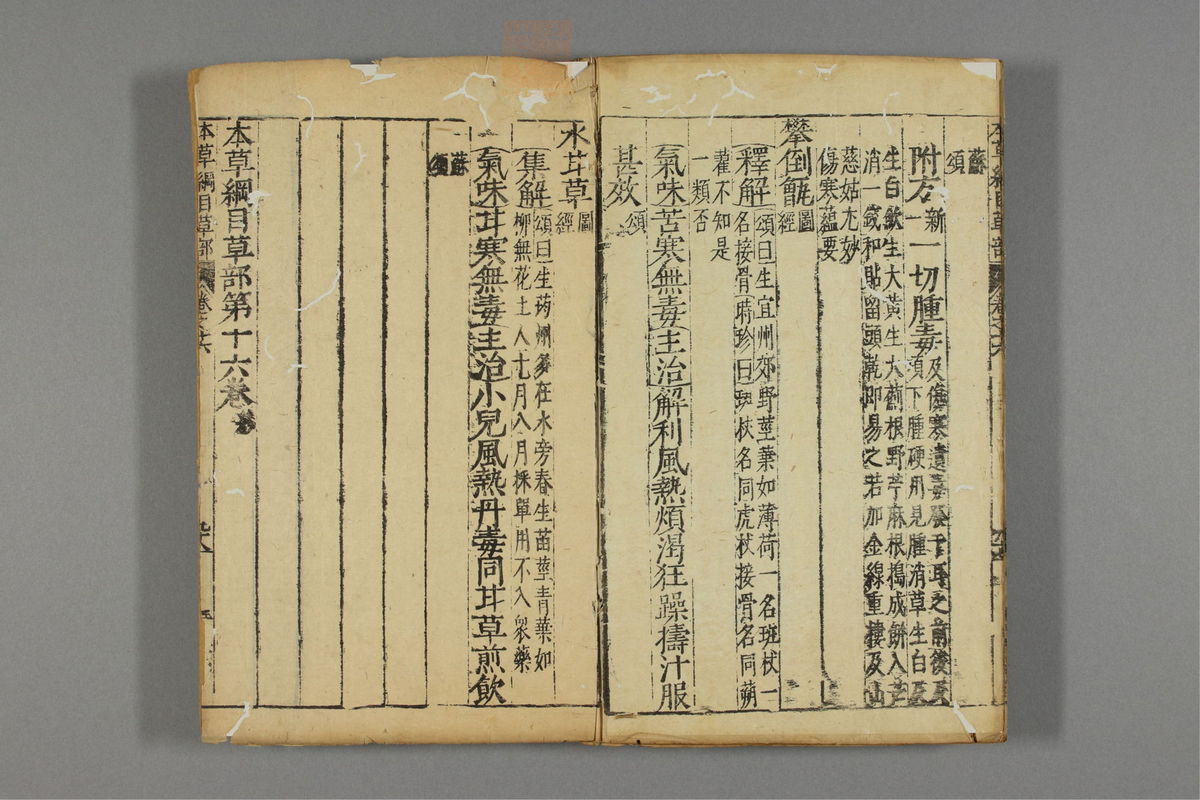 蘇頌
附方新一一切腫毒及傷寒遺毒發于耳之前後及
項下腫硬用見腫消草生白及
生白歛生大黃生大薊根野苧麻根搗成餅入芒
消一錢和貼留頭乾即易之若加金線重樓及山
慈姑尤妙
傷寒蘊要
攀倒甑圖經
釋解頌曰生宜州郊野莖葉如薄荷一名斑杖一
名接骨時珍曰斑杖名同虎杖接骨名同蒴
藋不知是
一類否
氣味苦寒無毒主治解利風熱煩渴狂躁擣汁服
甚效頌
水甘草圖經
集解頌曰生筠州多在水旁春生苗莖青葉如
柳無花土人七月八月採單用不入眾藥
氣味甘寒無毒主治小兒風熱丹毒同甘草煎飲
蘇頌
本草綱目草部第十六卷
本草綱目草部 卷十六